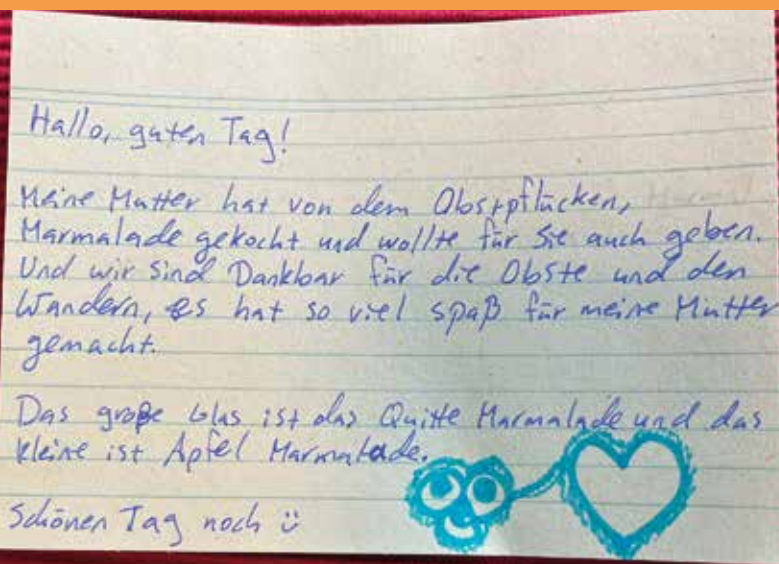 Hallo, guten Tag!
Meine Mutter hat von dem Obstpflücken,
Marmalade gekocht und wollte für Sie auch geben.
Und wir sind Dankbar für die Obste und den
Wandern, es hat so viel spaß für meine Mutter
gemacht.
Das große Glas ist das Quitte Marmalade und das
kleine ist Apfel Marmalade.
Schönen Tag noch ü